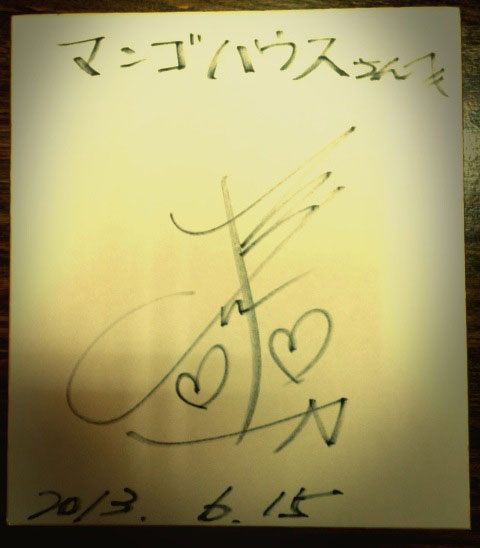 マンゴハウスさんへ
2013. 6. 15